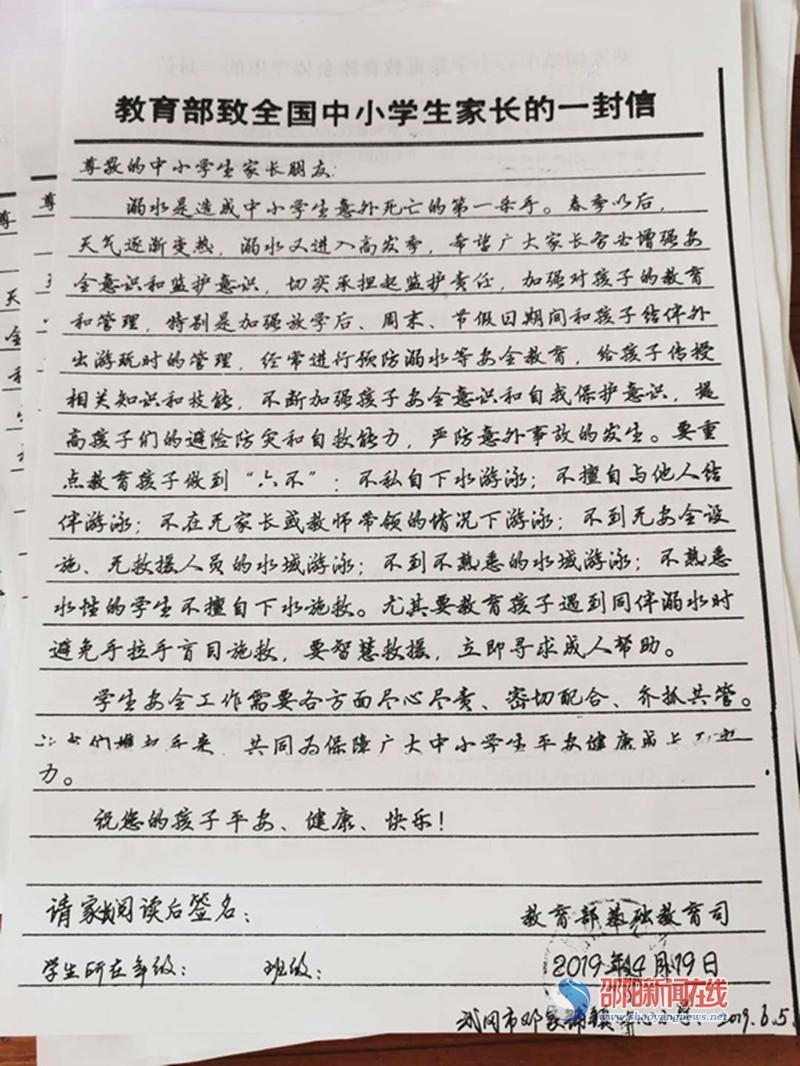 教育部致全国中小学生家长的一封信
尊敬的中小学生家长朋友：
溺水是造成中小学生意外死亡的第一杀手。春季以后，
天气逐渐变热，溺水又进入高发季，希望广大家长务必增强安
全意识和监护意识，切实承担起监护责任，加强对孩子的教育
和管理，特别是加强放学后、周末、节假日期间和孩子结伴外
出游玩时的管理，经常进行预防溺水等安全教育，给孩子传授
相关知识和技能，不断加强孩子安全意识和自我保护意识，提
高孩子们的避险防灾和自救能力，严防意外事故的发生。要重
点教育孩子做到“六不”：不私自下水游泳；不擅自与他人结
伴游泳；不在无家长或教师带领的情况下游泳；不到无安全设
施、无救援人员的水域游泳；不到不熟悉的水域游泳；不熟悉
水性的学生不擅自下水施救。尤其要教育孩子遇到同伴溺水时
避免手拉手盲目施救，要智慧救援，立即寻求成人帮助。
学生安全工作需要各方面尽心尽责、密切配合、齐抓共管。
们携起手来，共同为保障广大中小学生平安健康成
力。
祝您的孩子平安、健康、快乐！
请家长阅读后签名：
教育部基础教育司
学生所在年级： 班级：
2019年4月19日
邵阳新闻在线
www.shaoyangnews.com
武冈市邓家铺镇 小学 2019.6.5